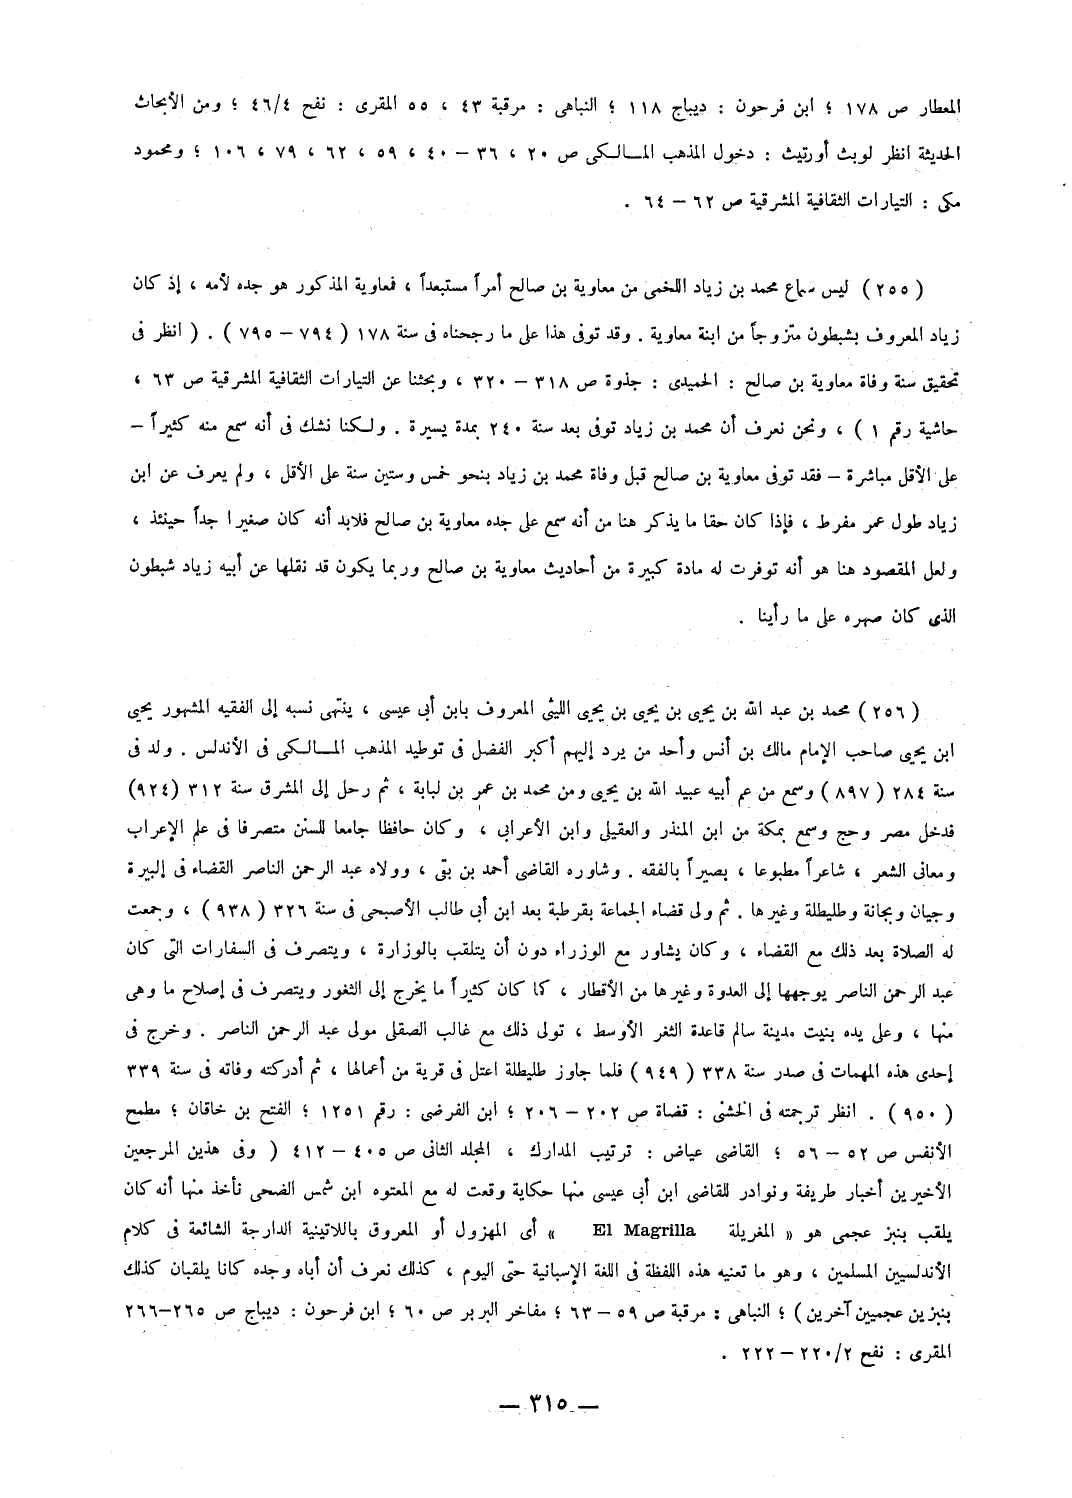 المعطار ص ١٧٨ ؛ ابن فرحون : ديباج ١١٨ ؛ النباهى : مرقبة ٤٣ ، ٥٥ المقرى : نفح ٤٦/٤ ؛ ومن الأبحاث
الحديثة انظر لوبث أورتيث : دخول المذهب المـالـكى ص ٢٠ ، ٣٦ – ٤٠ ، ٥٩ ، ٦٢ ، ٧٩ ، ١٠٦ ؛ ومحمود
مكى : التيارات الثقافية المشرقية ص ٦٢ – ٦٤ .
( ٢٥٥ ) ليس سماع محمد بن زياد اللخمى من معاوية بن صالح أمراً مستبعداً ، فمعاوية المذكور هو جده لأمه ، إذ كان
زياد المعروف بشبطون متزوجاً من ابنة معاوية . وقد توفى هذا على ما رجحناه فى سنة ١٧٨ ( ٧٩٤ – ٧٩٥ ) . ( انظر فى
تحقيق سنة وفاة معاوية بن صالح : الحميدى : جذوة ص ٣١٨ – ٣٢٠ ، وبحثنا عن التيارات الثقافية المشرقية ص ٦٣ ،
حاشية رقم ١ ) ، ونحن نعرف أن محمد بن زياد توفى بعد سنة ٢٤٠ بمدة يسيرة . ولـكنا نشك فى أنه سمع منه كثيراً –
على الأقل مباشرة – فقد توفى معاوية بن صالح قبل وفاة محمد بن زياد بنحو خمس وستين سنة على الأقل ، ولم يعرف عن ابن
زياد طول عمر مفرط ، فإذا كان حقا ما يذكر هنا من أنه سمع على جده معاوية بن صالح فلابد أنه كان صغيرا جداً حينئذ ،
ولعل المقصود هنا هو أنه توفرت له مادة كبيرة من أحاديث معاوية بن صالح وربما يكون قد نقلها عن أبيه زياد شبطون
الذى كان صهره على ما رأينا .
( ٢٥٦ ) محمد بن عبد الله بن يحيى بن يحيى بن يحيى الليثى المعروف بابن أبى عيسى ، ينتهى نسبه إلى الفقيه المشهور يحيى
ابن يحيى صاحب الإمام مالك بن أنس وأحد من يرد إليهم أكبر الفضل فى توطيد المذهب المـالـكى فى الأندلس . ولد فى
سنة ٢٨٤ ( ٨٩٧ ) وسمع من عم أبيه عبيد الله بن يحيى ومن محمد بن عمر بن لبابة ، ثم رحل إلى المشرق سنة ٣١٢ (٩٢٤)
فدخل مصر وحج وسمع بمكة من ابن المنذر والعقيلى وابن الأعرابى ، وكان حافظا جامعا للسنن متصرفا فى علم الإعراب
ومعانى الشعر ، شاعراً مطبوعا ، بصيراً بالفقه . وشاوره القاضى أحمد بن بقى ، وولاه عبد الرحمن الناصر القضاء فى إلبيرة
وجيان وبجانة وطليطلة وغيرها . ثم ولى قضاء الجماعة بقرطبة بعد ابن أبى طالب الأصبحى فى سنة ٣٢٦ ( ٩٣٨ ) ، وجمعت
له الصلاة بعد ذلك مع القضاء ، وكان يشاور مع الوزراء دون أن يتلقب بالوزارة ، ويتصرف فى السفارات التى كان
عبد الرحمن الناصر يوجهها إلى العدوة وغيرها من الأقطار ، كما كان كثيراً ما يخرج إلى الثغور ويتصرف فى إصلاح ما وهى
منها ، وعلى يده بنيت مدينة سالم قاعدة الثغر الأوسط ، تولى ذلك مع غالب الصقلى مولى عبد الرحمن الناصر . وخرج فى
إحدى هذه المهمات فى صدر سنة ٣٣٨ ( ٩٤٩ ) فلما جاوز طليطلة اعتل فى قرية من أعمالها ، ثم أدركته وفاته فى سنة ٣٣٩
( ٩٥٠ ) . انظر ترجمته فى الخشنى : قضاة ص ٢٠٢ – ٢٠٦ ؛ ابن الفرضى : رقم ١٢٥١ ؛ الفتح بن خاقان ؛ مطمح
الأنفس ص ٥٢ – ٥٦ ؛ القاضى عياض : ترتيب المدارك ، المجلد الثانى ص ٤٠٥ – ٤١٢ ( وفى هذين المرجعين
الأخيرين أخبار طريفة ونوادر للقاضى ابن أبى عيسى منها حكاية وقعت له مع المعتوه ابن شمس الضحى نأخذ منها أنه كان
يلقب بنبز عجمى هو « المغريلة El Magrilla » أى المهزول أو المعروق باللاتينية الدارجة الشائعة فى كلام
الأندلسيين المسلمين ، وهو ما تعنيه هذه اللفظة فى اللغة الإسبانية حتى اليوم ، كذلك نعرف أن أباه وجده كانا يلقبان كذلك
بنبزين عجميين آخرين ) ؛ النباهى : مرقبة ص ٥٩ – ٦٣ ؛ مفاخر البربر ص ٦٠ ؛ ابن فرحون : ديباج ص ٢٦٥–٢٦٦
المقرى : نفح ٢٢٠/٢ – ٢٢٢ .
— ٣١٥ —